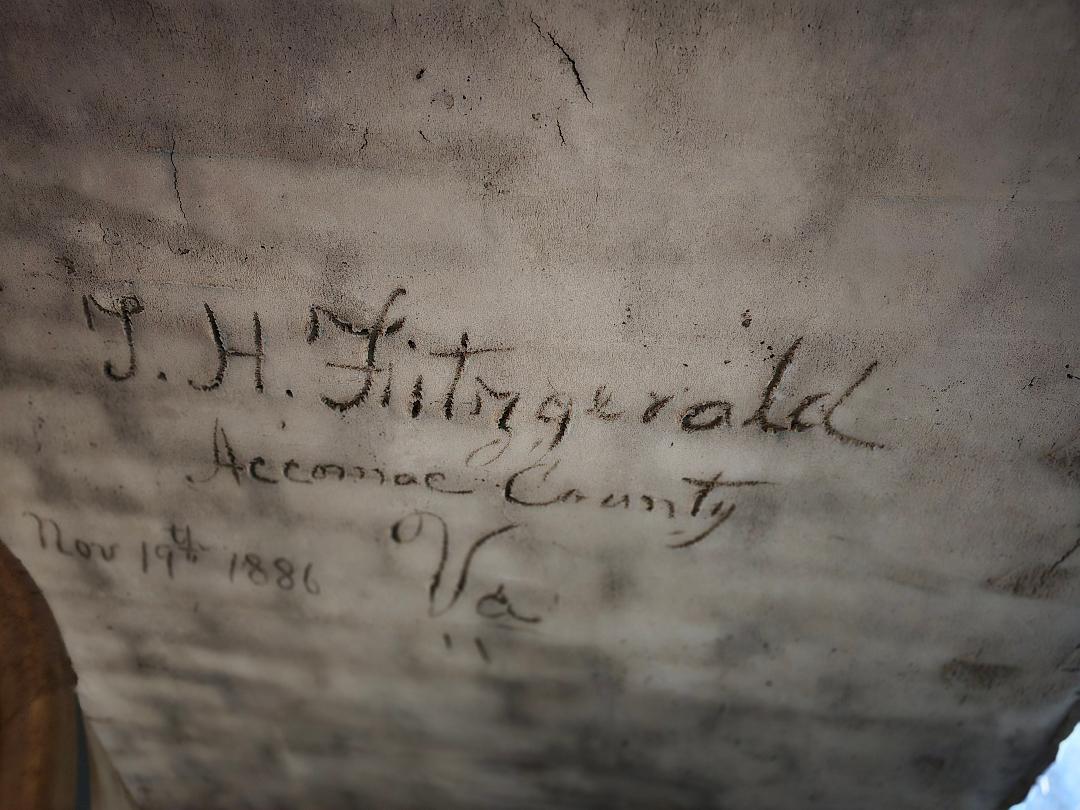 T. H. Fitzgerald
Accomac County
Nov 19th 1886
Va